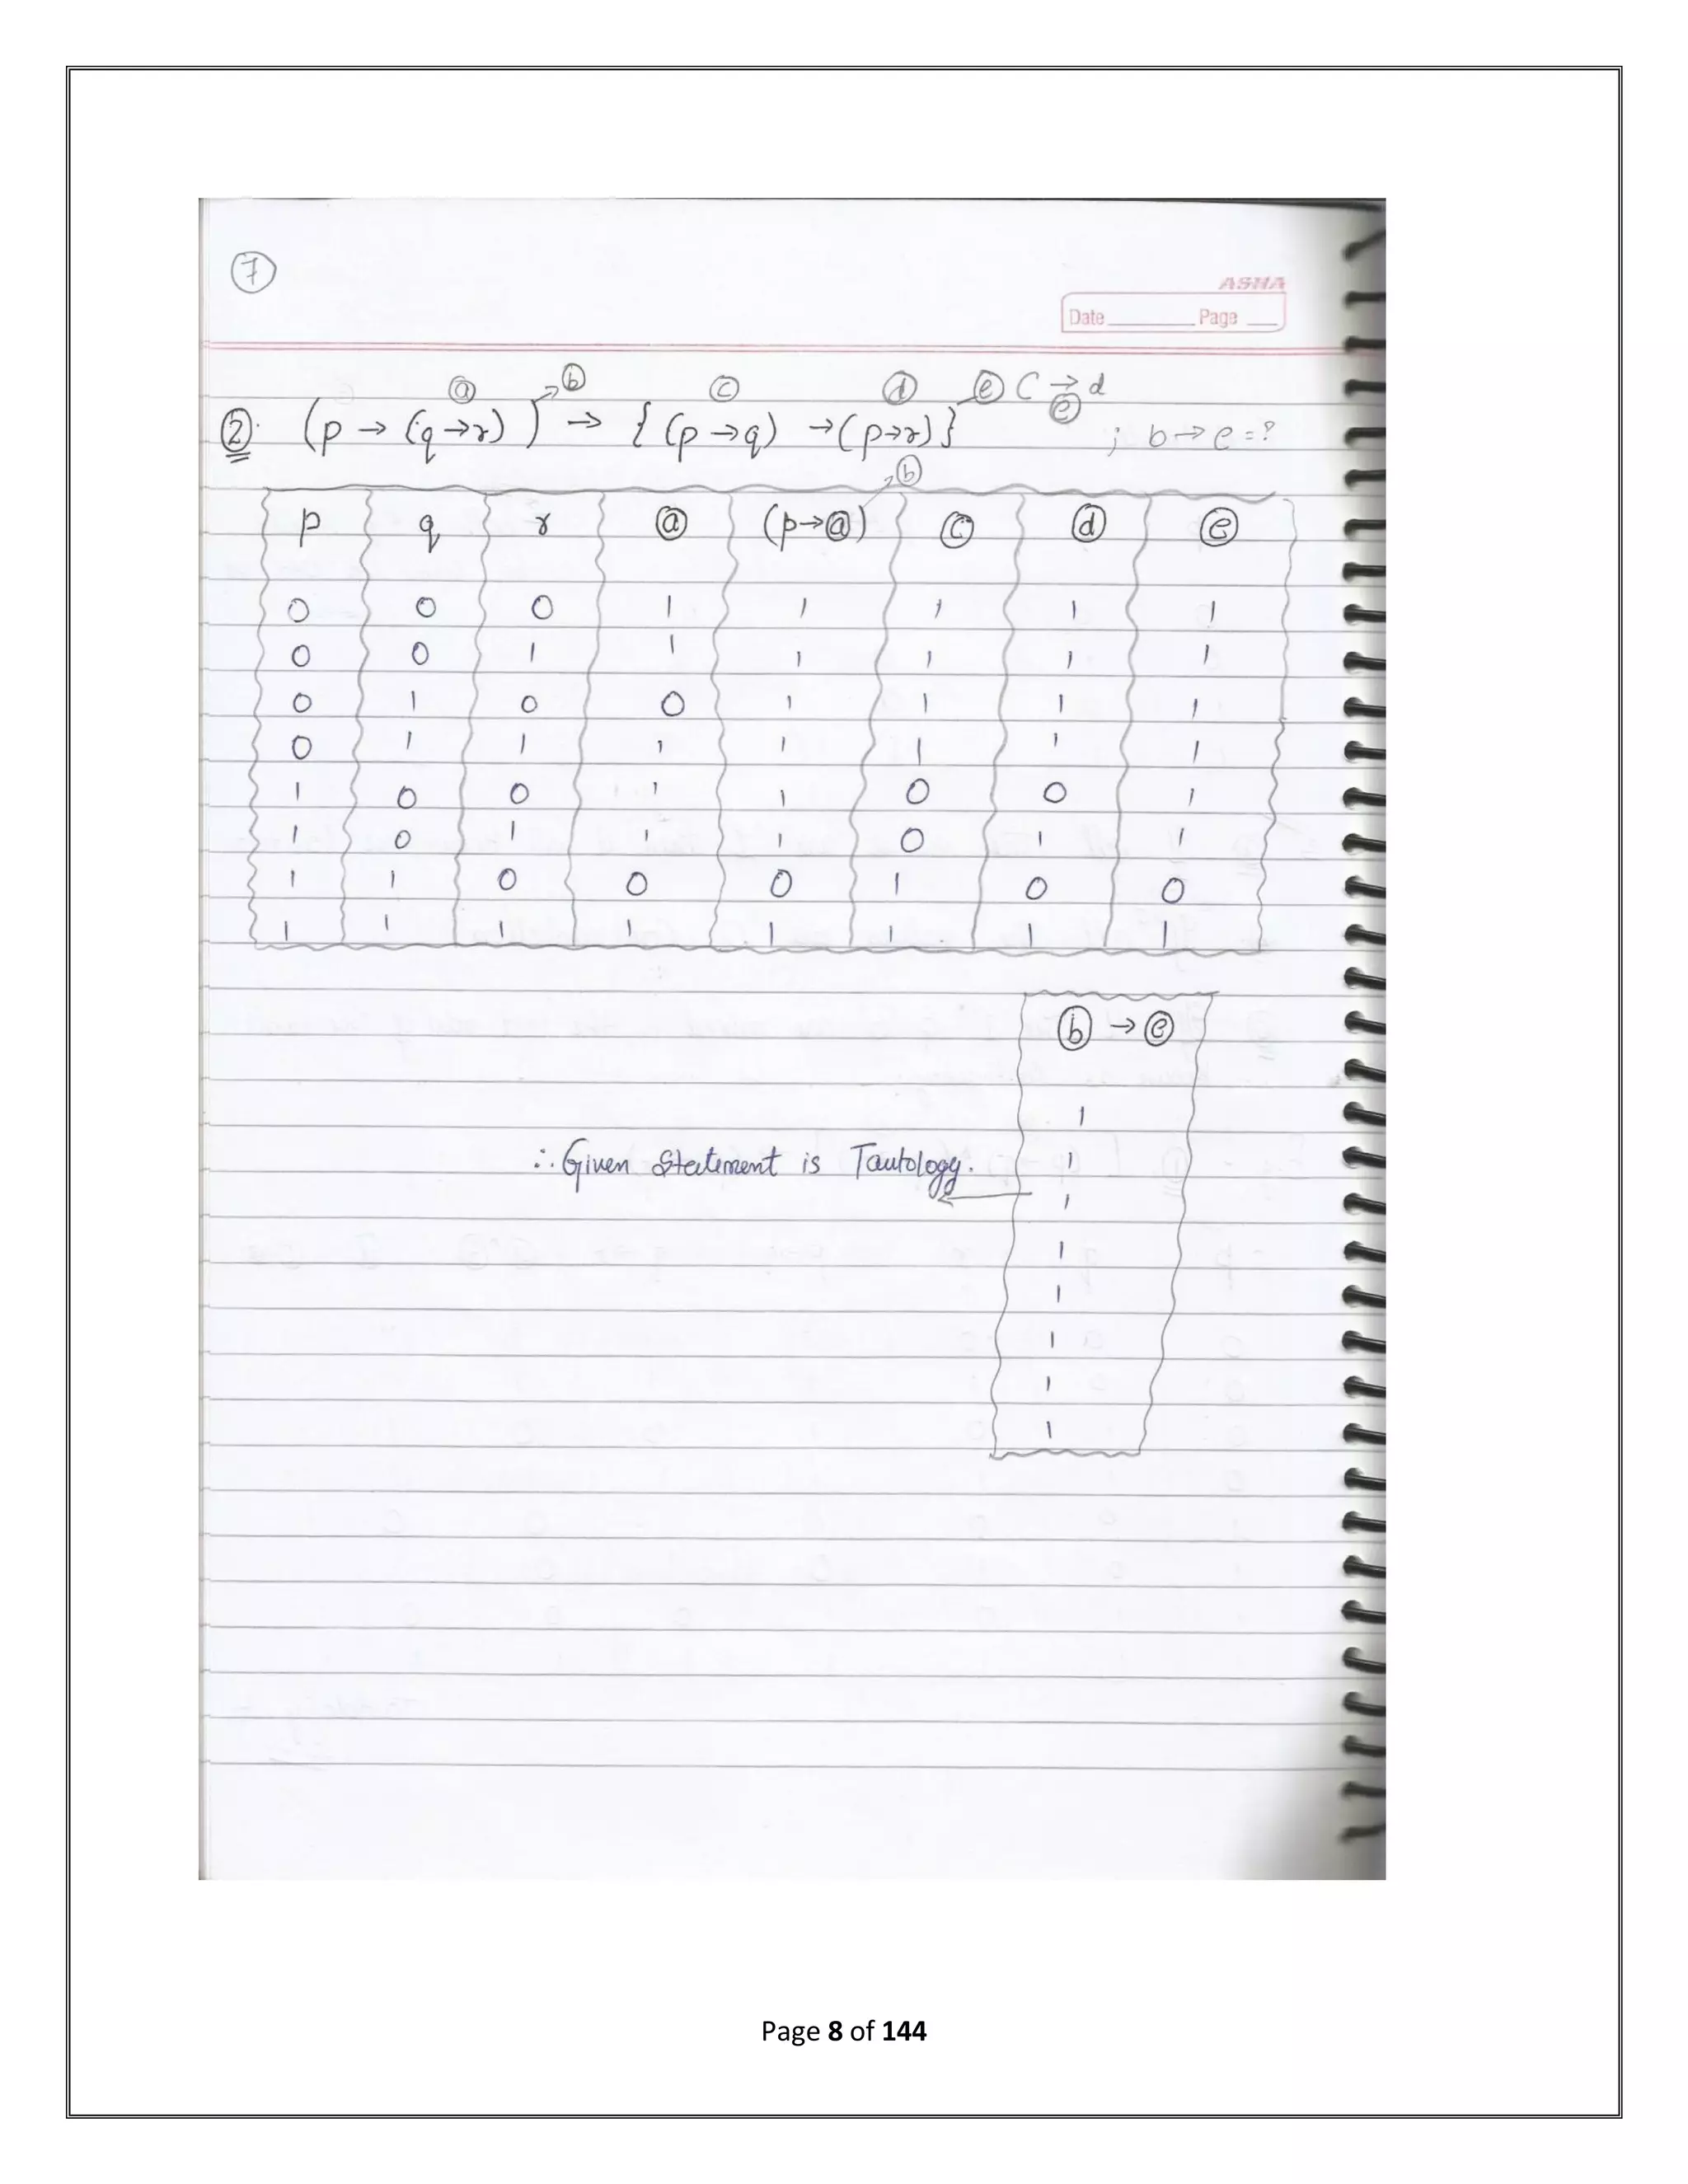 ⑦
ASHA
Date ________ Page ___
ⓐ ⓑ ⓒ ⓓ ⓔ C → d
ⓔ
②. (p → (q → r)) → { (p → q) → (p → r) } ; b → e = ?
ⓑ
p q r ⓐ (p → ⓐ) ⓒ ⓓ ⓔ
0 0 0 1 1 1 1 1
0 0 1 1 1 1 1 1
0 1 0 0 1 1 1 1
0 1 1 1 1 1 1 1
1 0 0 1 1 0 0 1
1 0 1 1 1 0 1 1
1 1 0 0 0 1 0 0
1 1 1 1 1 1 1 1
ⓑ → ⓔ
1
∴ Given Statement is Tautology. 1
1
1
1
1
1
1
Page 8 of 144